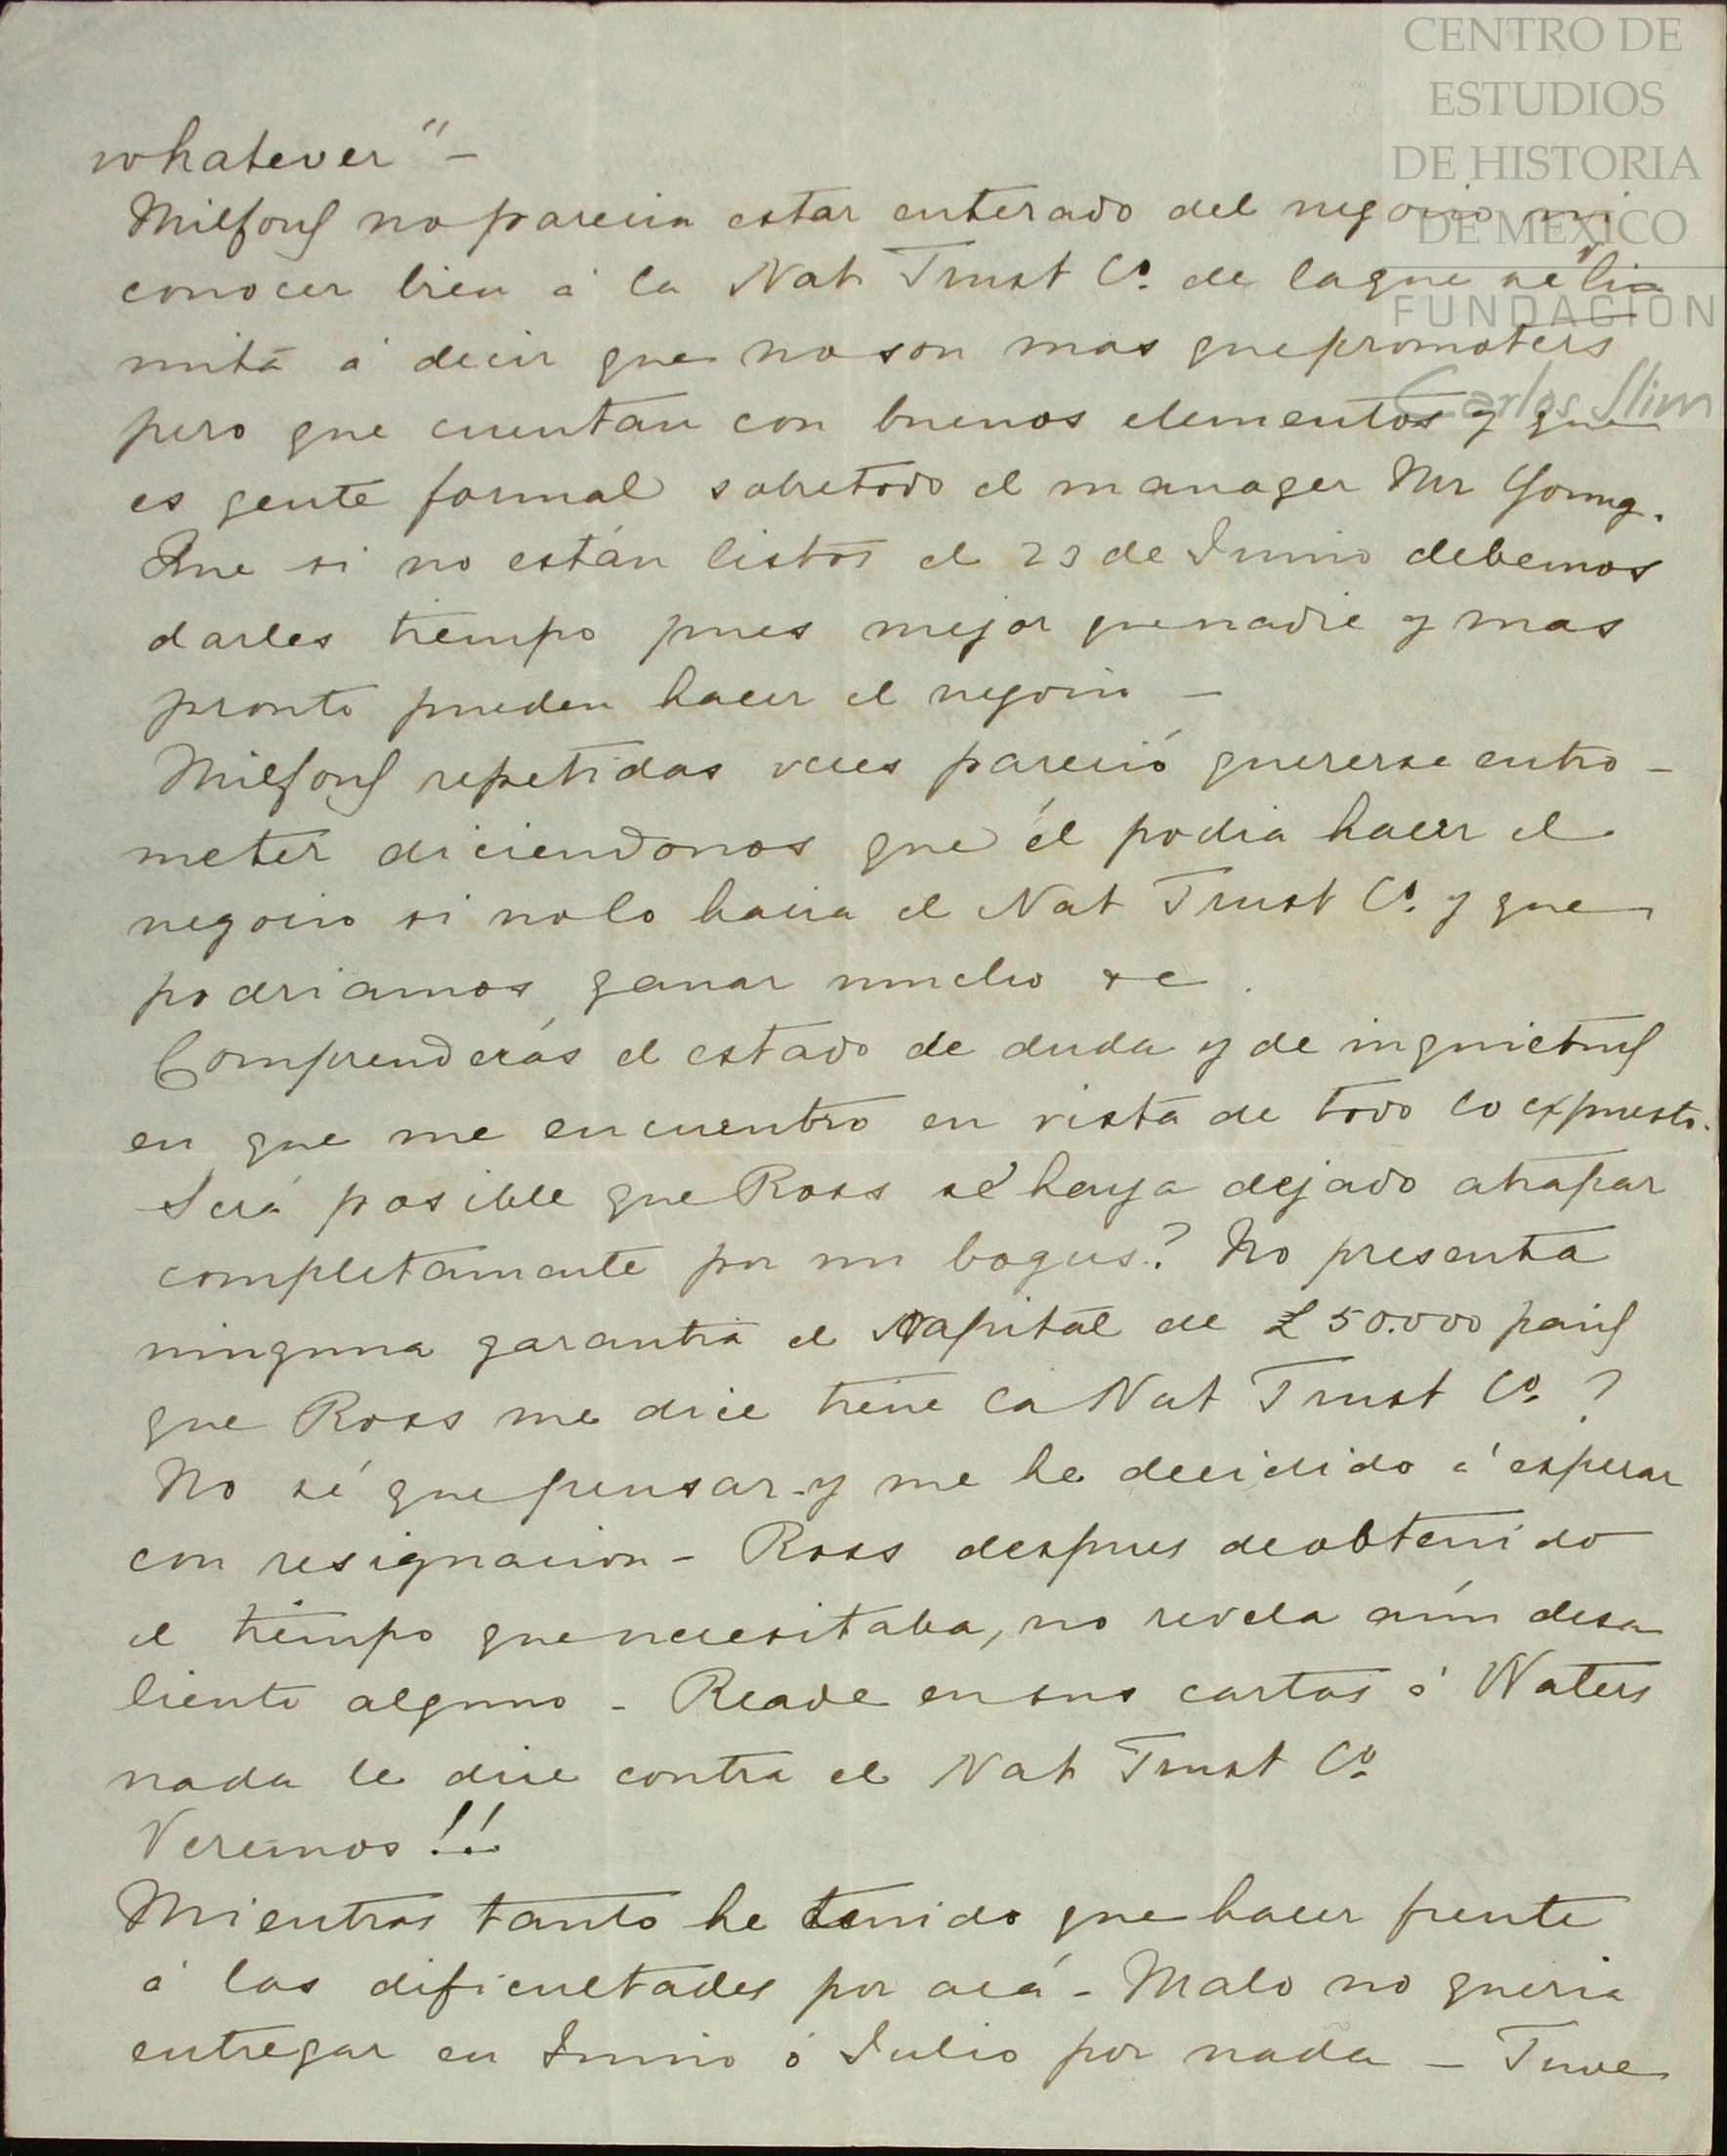 CENTRO DE
ESTUDIOS
DE HISTORIA
DE MEXICO
FUNDACIÓN
Carlos Slim
whatever" -
Milford no parecia estar enterado del negocio ni
conocer bien á la Nat Trust Cº. de la que se li-
mitá á decir que no son mas que promoters
pero que cuentan con buenos elementos y que
es gente formal sobretodo el manager Mr Young.
Que si no están listos el 23 de Junio debemos
darles tiempo pues mejor que nadie y mas
pronto pueden hacer el negocio -
Milford repetidas veces pareció quererse entro-
meter diciendonos que él podia hacer el
negocio si no lo hacia el Nat Trust Cº. y que
podriamos ganar mucho &c.
Comprenderás el estado de duda y de inquietud
en que me encuentro en vista de todo lo expuesto.
Será posible que Ross se haya dejado atrapar
completamente por un bogus? No presenta
ninguna garantia el Kapital de £50.000 paid
que Ross me dice tiene la Nat Trust Cº.?
No sé que pensar y me he decidido á esperar
con resignacion - Ross despues de obtenido
el tiempo que necesitaba, no revela aún desa
liento alguno - Reade en sus cartas á Waters
nada le dice contra el Nat Trust Cº.
Veremos!!
Mientras tanto he tenido que hacer frente
á las dificultades por acá - Malo no queria
entregar en Junio ó Julio por nada - Tuve